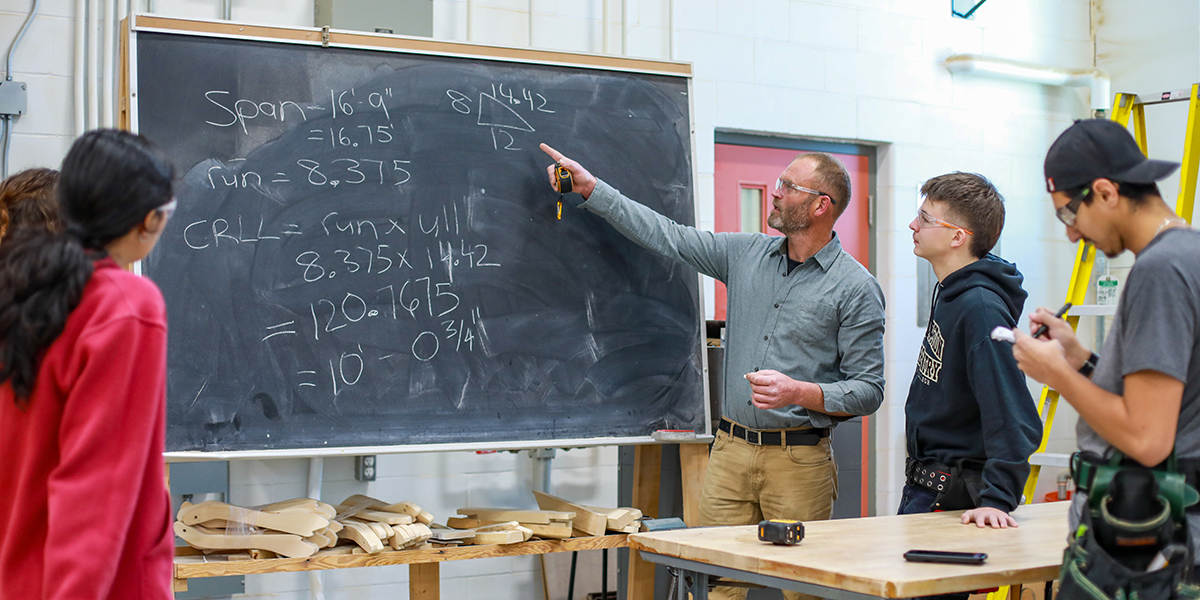 Span = 16'-9"
= 16.75'
run = 8.375
CRLL = run x ull
8.375 x 14.42
= 120.7675
= 10' - 0 3/4"
14.42
8
12